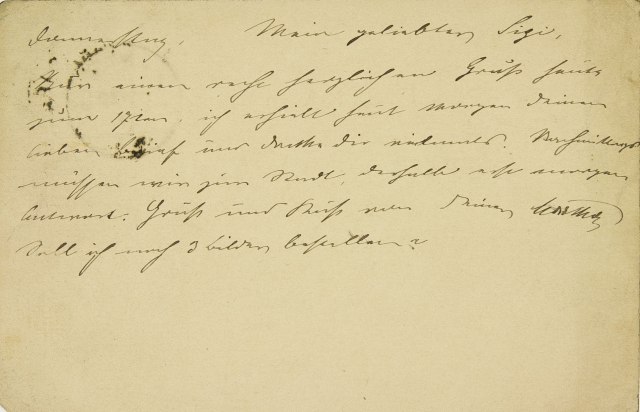 Donnerstag, Mein geliebter Sigi,
Nur einen recht herzlichen Gruß heute
zum 17ten, ich erhielt heut morgen Deinen
lieben Brief und danke Dir vielmals. Nachmittags
müssen wir zur Stadt, deshalb erst morgen
Antwort. Gruß und Kuß von Deiner
Soll ich noch 3 Bilder bestellen?